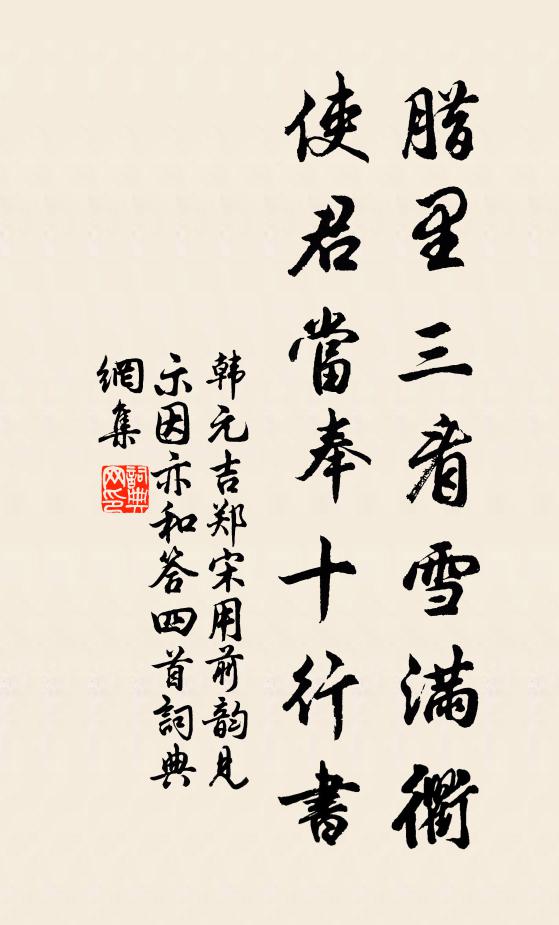 腊里三看雪满衢
使君當奉十行書
韩元吉郑宋用前韵见
示因亦和答四首詞典
網集
詞典網印